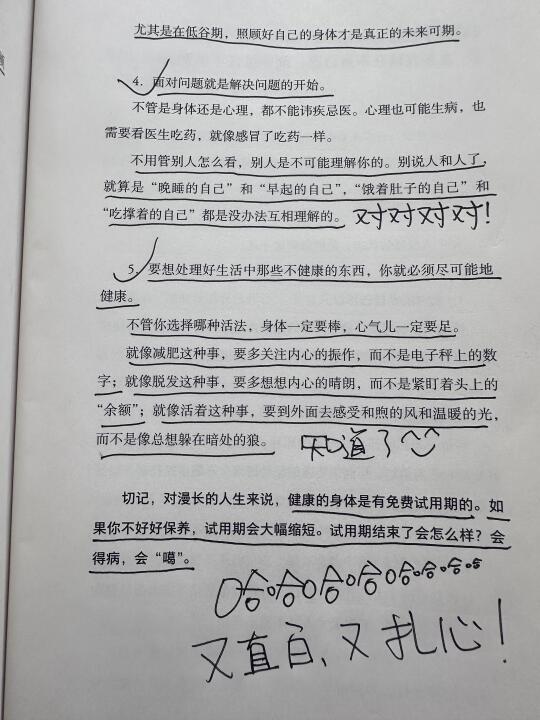 尤其是在低谷期，照顾好自己的身体才是真正的未来可期。
4. 面对问题就是解决问题的开始。
不管是身体还是心理，都不能讳疾忌医。心理也可能生病，也
需要看医生吃药，就像感冒了吃药一样。
不用管别人怎么看，别人是不可能理解你的。别说人和人了，
就算是“晚睡的自己”和“早起的自己”，“饿着肚子的自己”和
“吃撑着的自己”都是没办法互相理解的。 对对对对！
5. 要想处理好生活中那些不健康的东西，你就必须尽可能地
健康。
不管你选择哪种活法，身体一定要棒，心气儿一定要足。
就像减肥这种事，要多关注内心的振作，而不是电子秤上的数
字；就像脱发这种事，要多想想内心的晴朗，而不是紧盯着头上的
“余额”；就像活着这种事，要到外面去感受和煦的风和温暖的光，
而不是像总想躲在暗处的狼。 知道了
切记，对漫长的人生来说，健康的身体是有免费试用期的。如
果你不好好保养，试用期会大幅缩短。试用期结束了会怎么样？会
得病，会“噶”。
哈哈哈哈哈哈哈哈
又直白、又扎心！